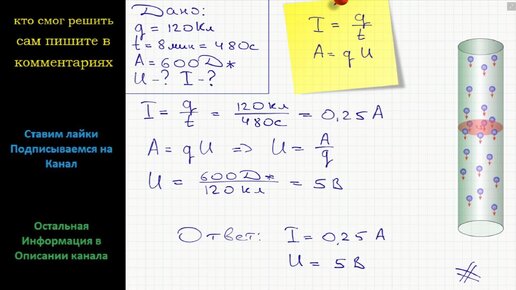 кто смог решить
сам пишите в
комментариях
Ставим лайки
Подписываемся на
Канал
Остальная
Информация в
Описании канала
Дано:
q = 120 Кл
t = 8 мин = 480 с
A = 600 Дж
U - ? I - ?
I = q/t
A = q U
I = q/t = 120 Кл/480 с = 0,25 А
A = q U => U = A/q
U = 600 Дж/120 Кл = 5 В
Ответ: I = 0,25 А
U = 5 В